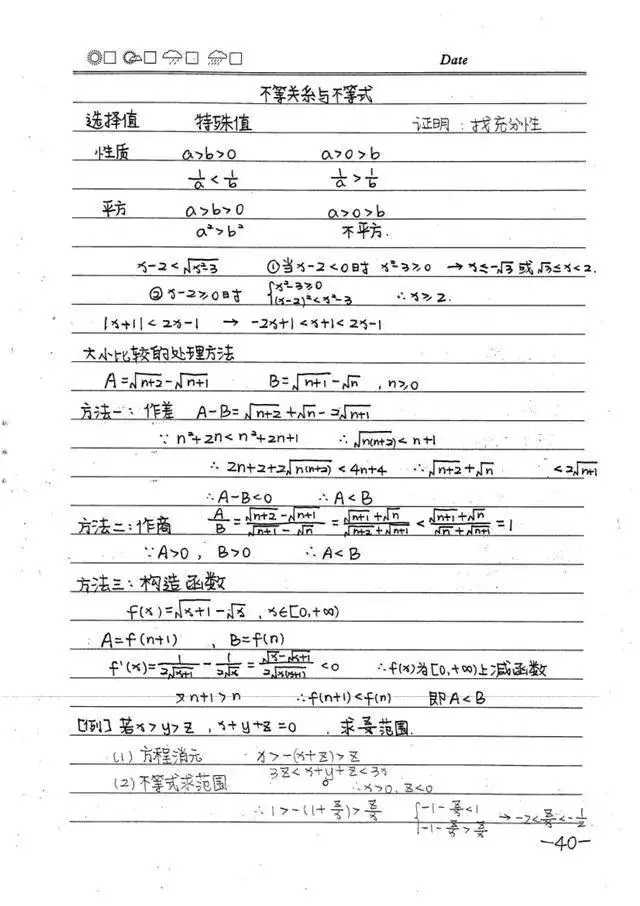 Date
不等关系与不等式
选择值 特殊值 证明：找充分性
性质 a>b>0 a>0>b
1/a < 1/b 1/a > 1/b
平方 a>b>0 a>0>b
a²>b² 不平方.
x-2<√(x²-3) ①当x-2<0时 x²-3≥0 → x≤-√3 或 √3≤x<2.
②x-2≥0时 {x²-3≥0 (x-2)²<x²-3 ∴x≥2.
|x+1|<2x-1 → -2x+1<x+1<2x-1
大小比较的处理方法
A=√(n+2)-√(n+1) B=√(n+1)-√n , n≥0
方法一：作差 A-B=√(n+2)+√n-2√(n+1)
∵ n²+2n<n²+2n+1 ∴√(n(n+2))<n+1
∴ 2n+2+2√(n(n+2))<4n+4 ∴√(n+2)+√n <2√(n+1)
∴A-B<0 ∴A<B
方法二：作商 A/B=(√(n+2)-√(n+1))/(√(n+1)-√n)=(√(n+1)+√n)/(√(n+2)+√(n+1))<(√(n+1)+√n)/(√n+√(n+1))=1
∵A>0, B>0 ∴A<B
方法三：构造函数
f(x)=√(x+1)-√x , x∈[0,+∞)
A=f(n+1) , B=f(n)
f'(x)=1/(2√(x+1))-1/(2√x)=(√x-√(x+1))/(2√(x(x+1)))<0 ∴f(x)为[0,+∞)上减函数
又n+1>n ∴f(n+1)<f(n) 即A<B
[例]若x>y>z , x+y+z=0 , 求z/x范围.
(1)方程消元 x>-(x+z)>z
3z<x+y+z<3x
(2)不等式求范围 ∴x>0, z<0
∴1>-(1+z/x)>z/x {-1-z/x<1 -1-z/x>z/x → -2<z/x<-1/2
-40-